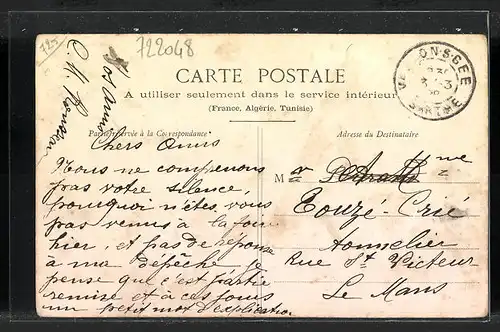 725
722048
CARTE POSTALE
A utiliser seulement dans le service intérieur
(France, Algérie, Tunisie)
Partie réservée à la Correspondance
Adresse du Destinataire
Chers Amis
Nous ne comprenons
pas votre silence,
pourquoi n'êtes vous
pas venus à la foire
hier, et pas de réponse
à ma dépêche Je
pense que c'est partie
remise et à ces jours
un petit mot d'explication
Vos amis
M r
me
Touzé-Crié
Tonnelier
Rue St Victeur
Le Mans
SARTHE